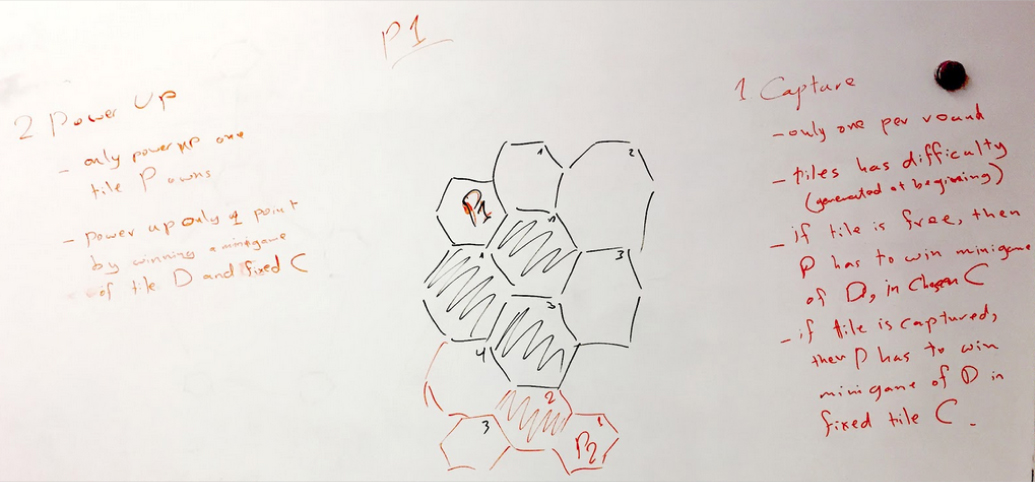 P1
2 Power Up
- only power up one
tile P owns
- power up only 1 point
by winning a minigame
of tile D and fixed C
1 Capture
- only one per round
- tiles has difficulty
(generated at beginning)
- if tile is free, then
P has to win minigame
of D, in Chosen C
- if tile is captured,
then P has to win
minigame of D in
fixed tile C.
1
2
P1
3
3
4
2
3
1
P2